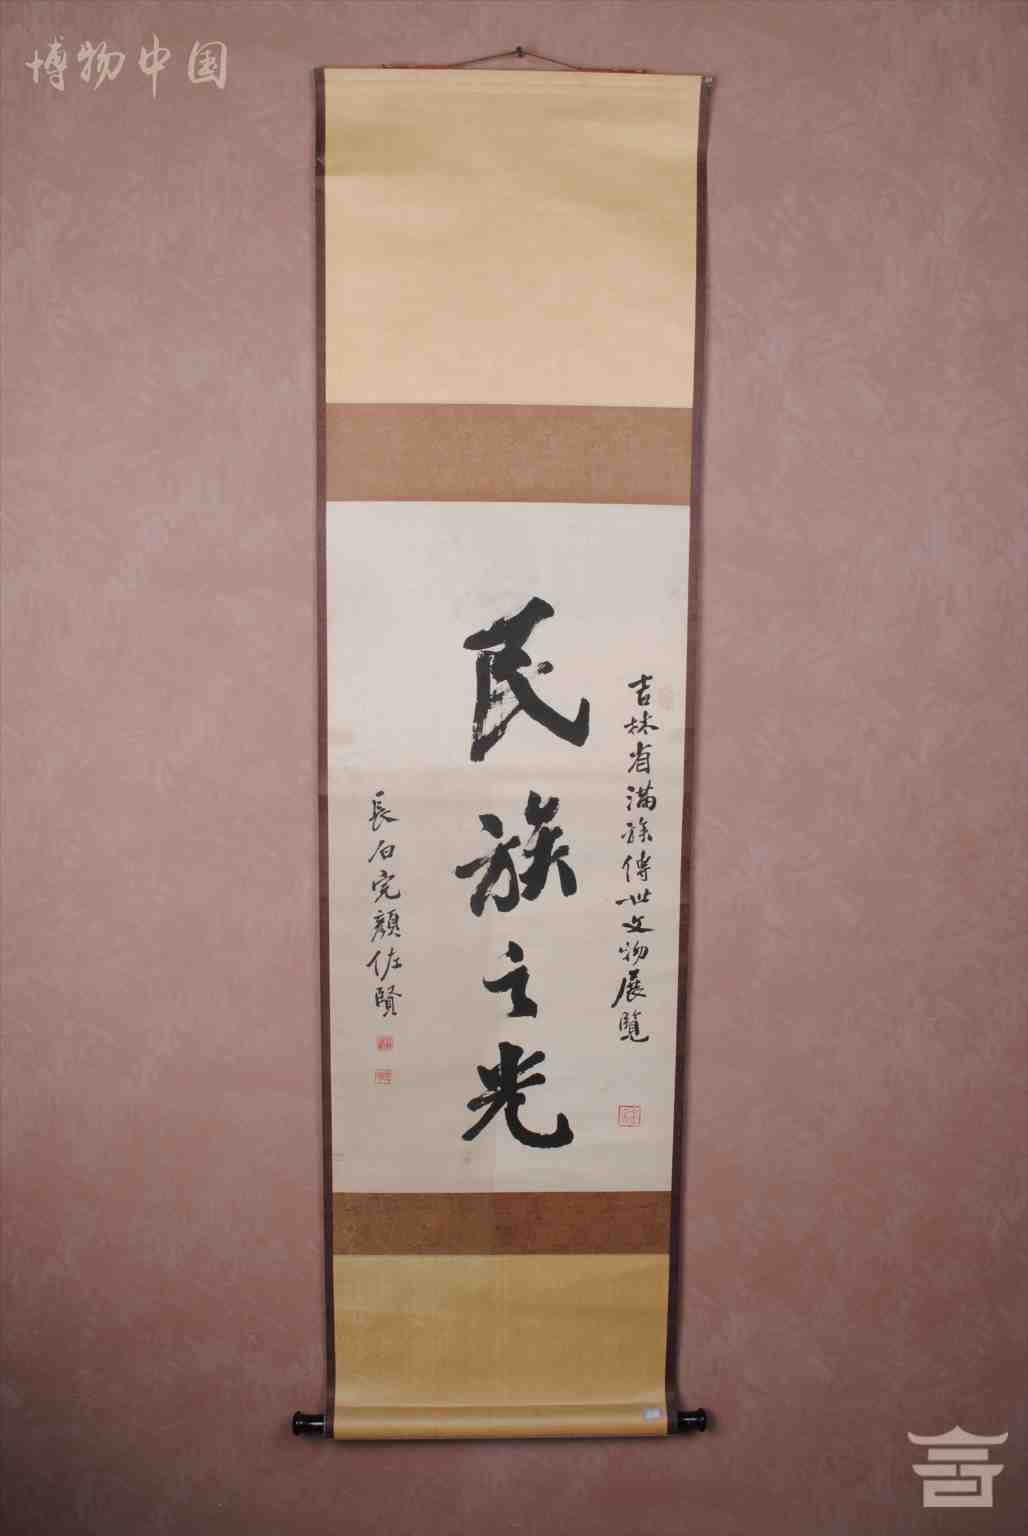 博物中国
吉林省滿族傳世文物展覽
民族之光
長白完顏佐賢